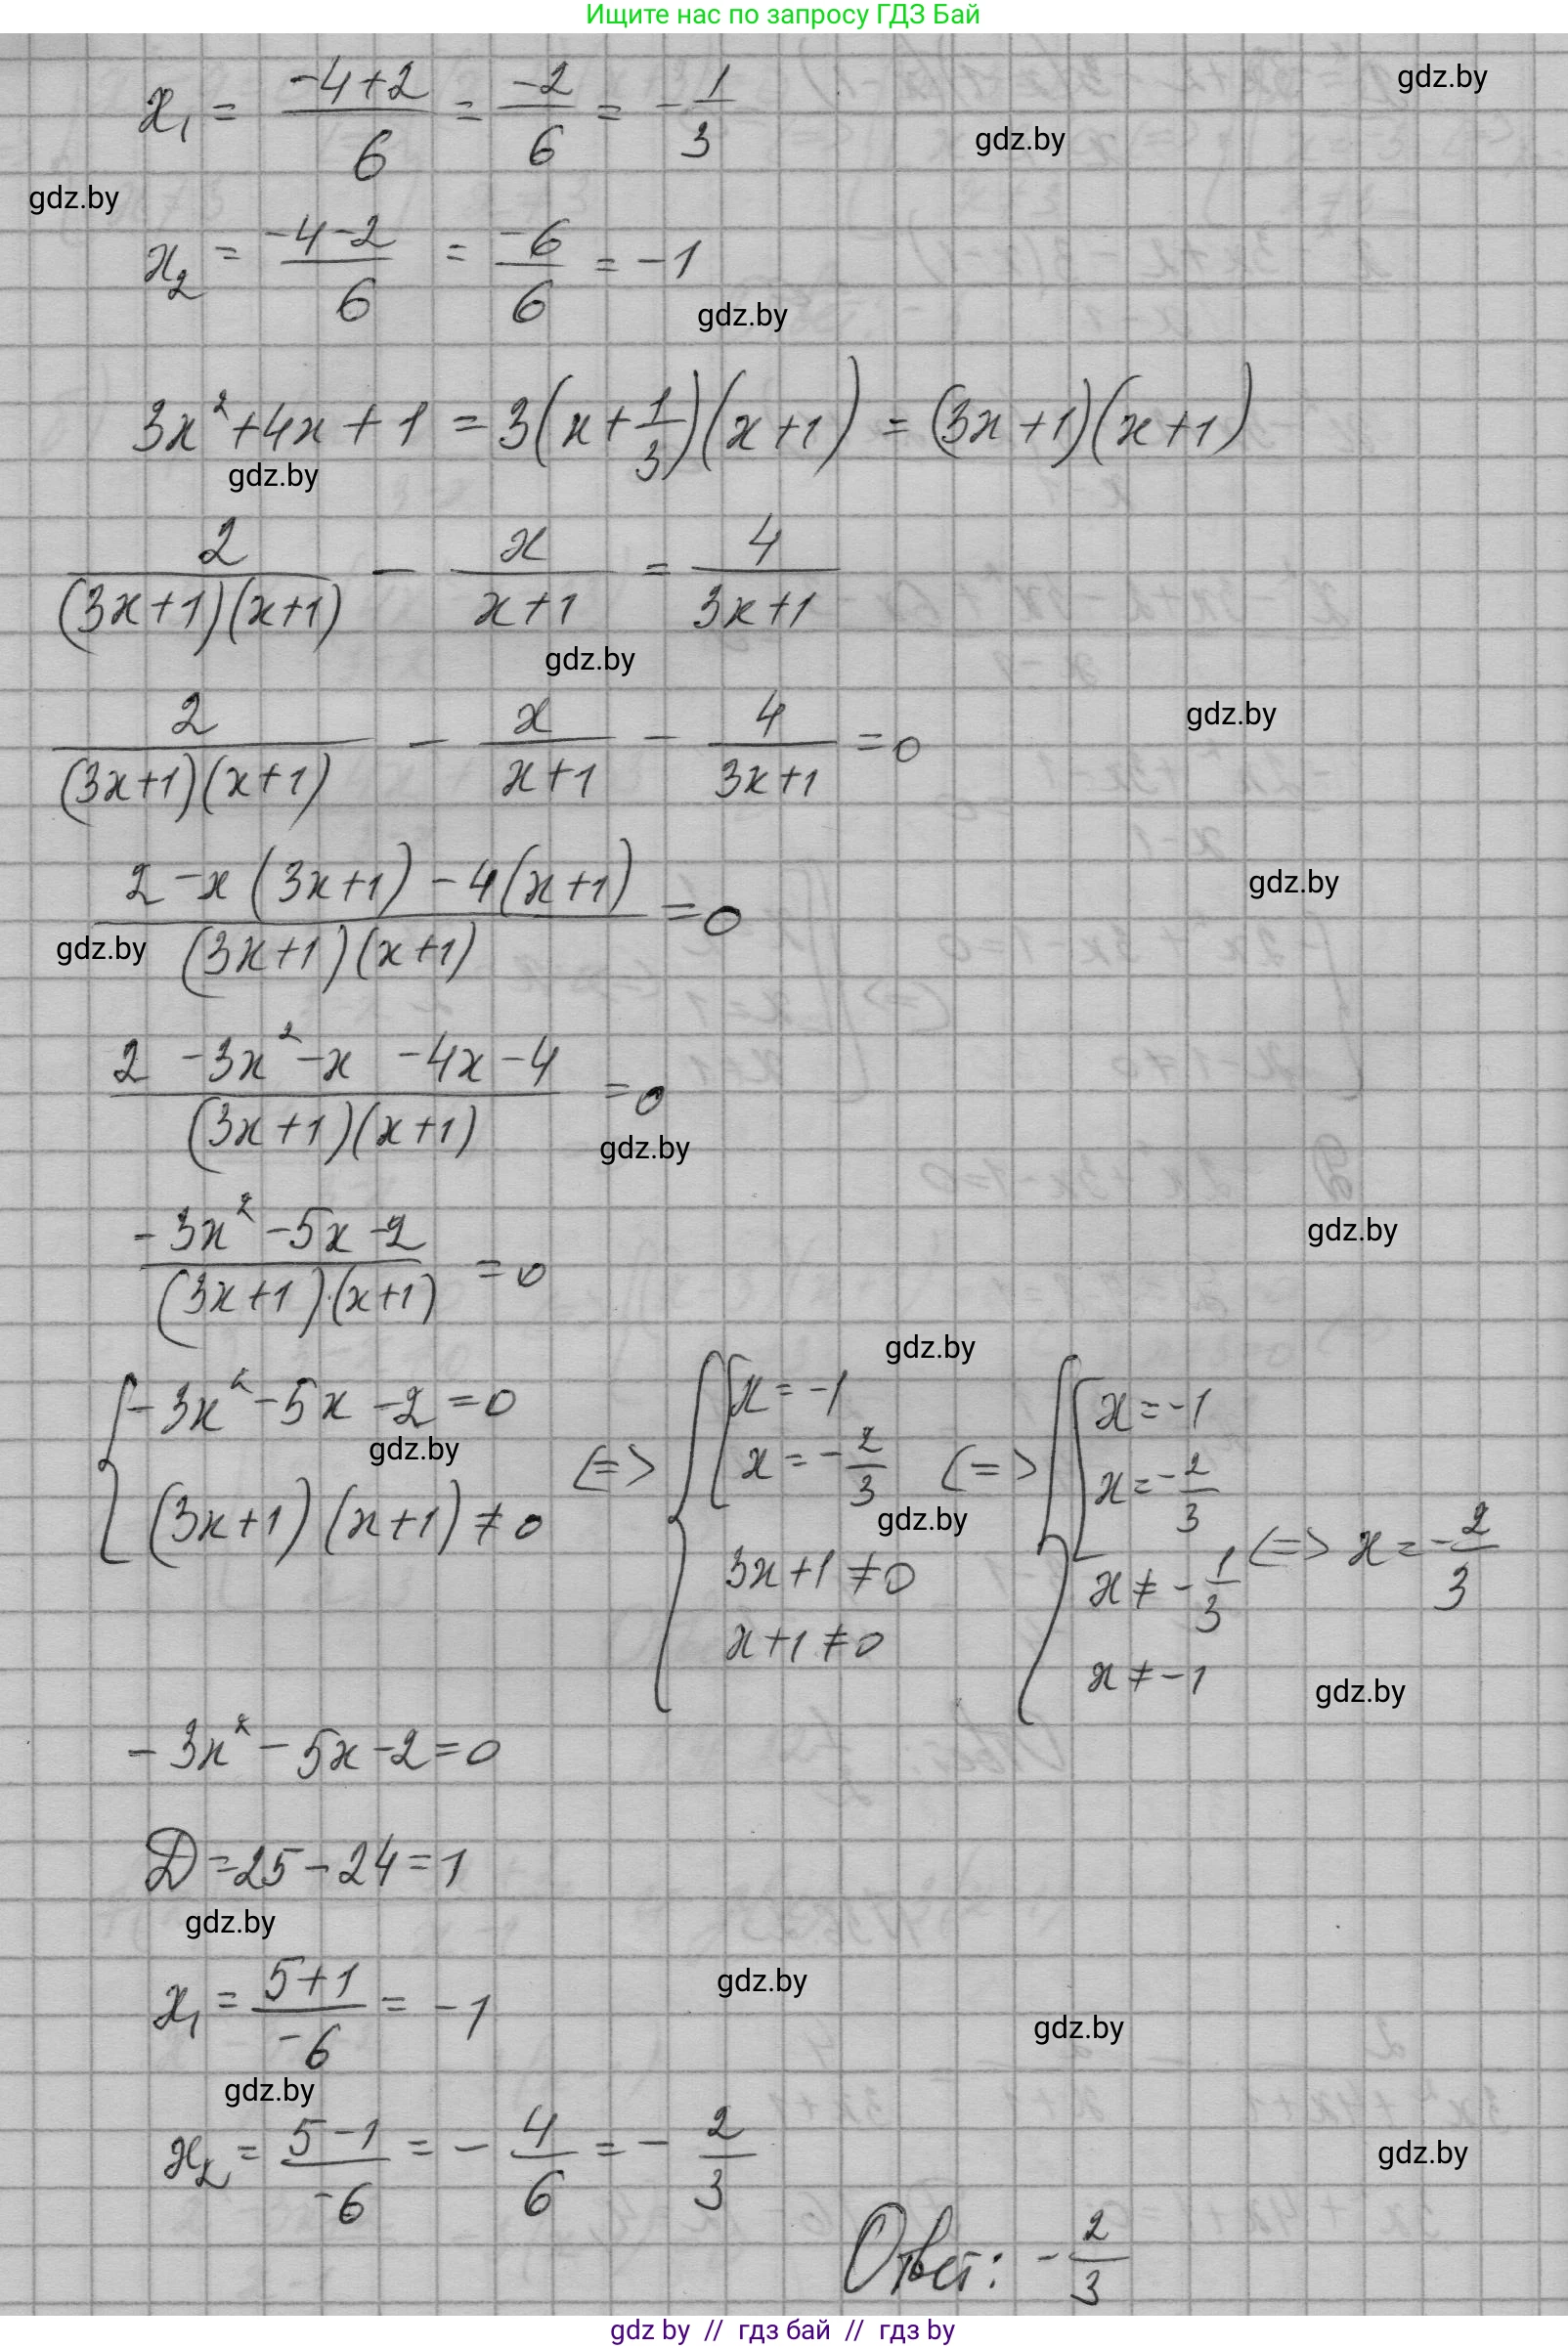 Ищите нас по запросу ГДЗ Бай
gdz.by
x₁ = (-4+2)/6 = -2/6 = -1/3
gdz.by
gdz.by
x₂ = (-4-2)/6 = -6/6 = -1
gdz.by
3x²+4x+1 = 3(x+1/3)(x+1) = (3x+1)(x+1)
gdz.by
2/((3x+1)(x+1)) - x/(x+1) = 4/(3x+1)
gdz.by
gdz.by
2/((3x+1)(x+1)) - x/(x+1) - 4/(3x+1) = 0
gdz.by
(2-x(3x+1)-4(x+1))/((3x+1)(x+1)) = 0
gdz.by
(2-3x²-x-4x-4)/((3x+1)(x+1)) = 0
gdz.by
gdz.by
(-3x²-5x-2)/((3x+1)(x+1)) = 0
gdz.by
{-3x²-5x-2=0 (3x+1)(x+1)≠0 <=> {[x=-1 x=-2/3 3x+1≠0 x+1≠0 <=> {[x=-1 x=-2/3 x≠-1/3 x≠-1 <=> x=-2/3
gdz.by
gdz.by
gdz.by
-3x²-5x-2=0
D=25-24=1
gdz.by
gdz.by
x₁ = (5+1)/-6 = -1
gdz.by
gdz.by
x₂ = (5-1)/-6 = -4/6 = -2/3
gdz.by
Ответ: -2/3
gdz by // гдз бай // гдз by